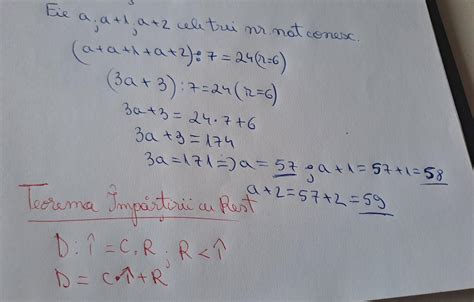 Fie a, a+1, a+2 cele trei nr. nat. consec.
(a+a+1+a+2):7=24(r=6)
(3a+3):7=24(r=6)
3a+3=24·7+6
3a+3=174
3a=171=>a=57; a+1=57+1=58
a+2=57+2=59
Teorema Împărțirii cu Rest
D:Î=C,R; R<Î
D=C·Î+R